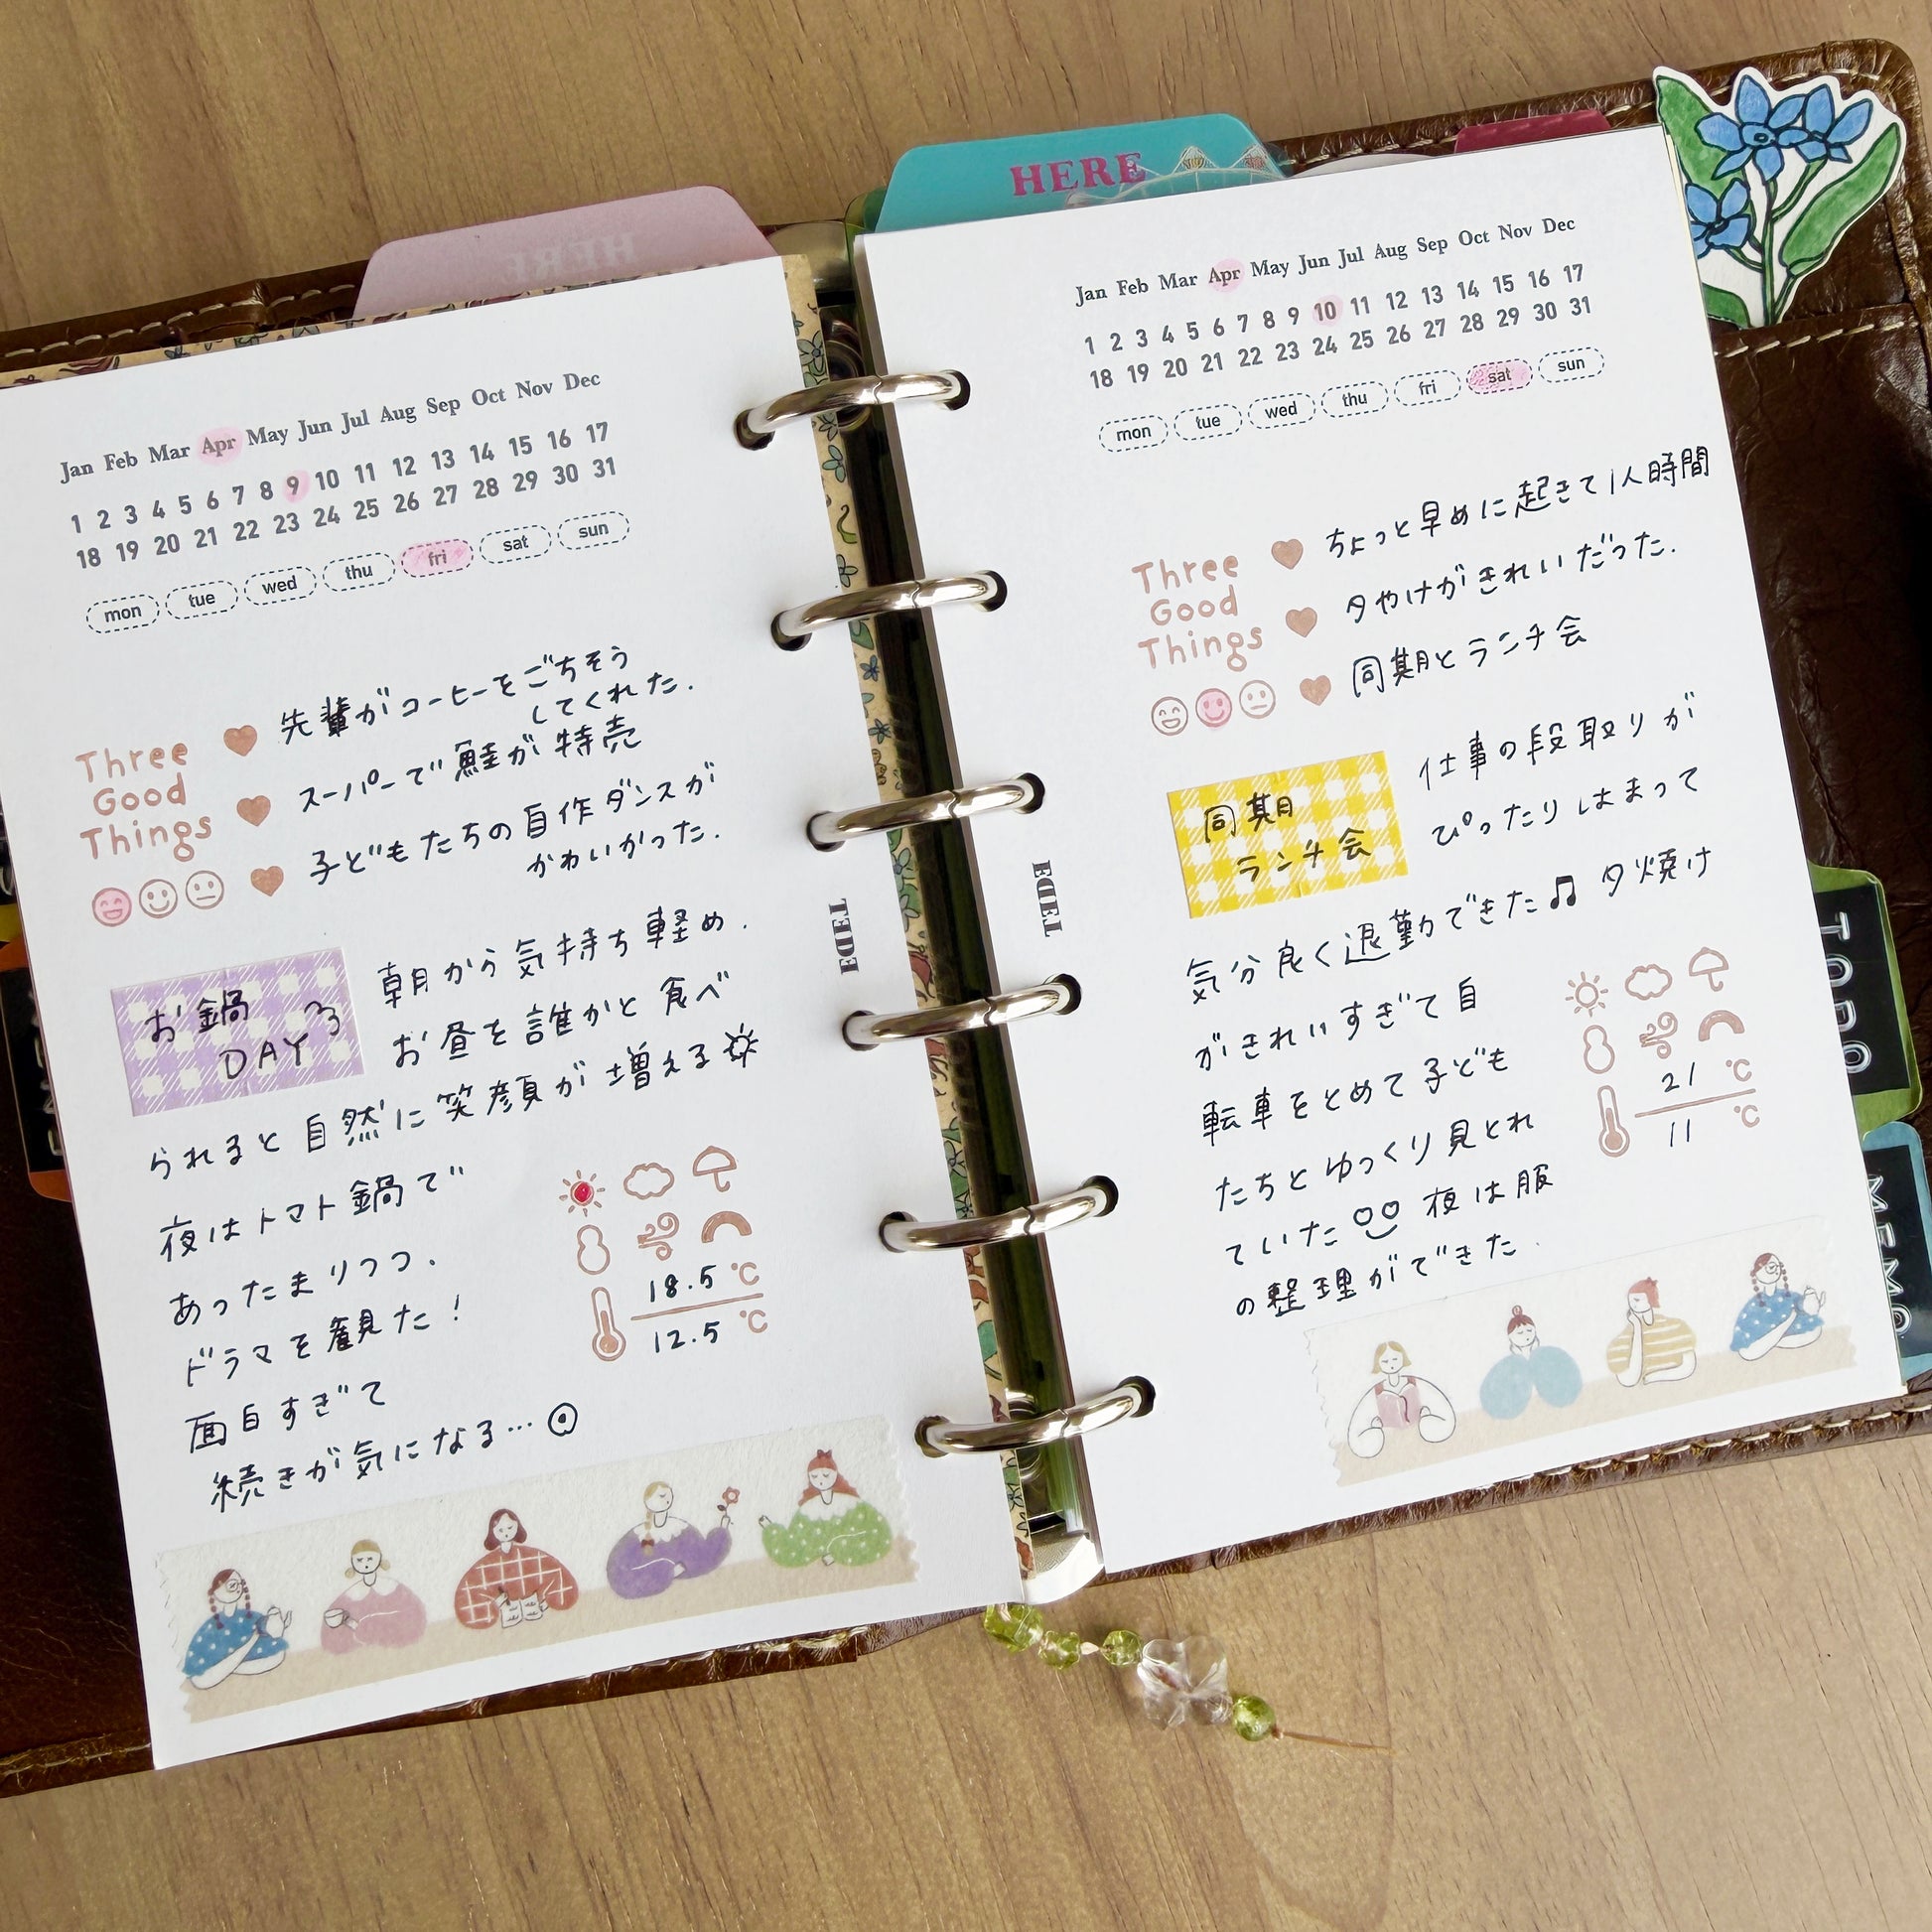 HERE
Jan Feb Mar Apr May Jun Jul Aug Sep Oct Nov Dec
1 2 3 4 5 6 7 8 9 10 11 12 13 14 15 16 17
18 19 20 21 22 23 24 25 26 27 28 29 30 31
mon tue wed thu fri sat sun
Three Good Things
先輩がコーヒーをごちそう
してくれた.
スーパーで鮭が特売
子どもたちの自作ダンスが
かわいかった.
お鍋
DAY
朝から気持ち軽め.
お昼を誰かと食べ
られると自然に笑顔が増える
夜はトマト鍋で
あったまりつつ、
ドラマを観た!
面白すぎて
続きが気になる…
18.5 ℃
12.5 ℃
EDET
HERE
Jan Feb Mar Apr May Jun Jul Aug Sep Oct Nov Dec
1 2 3 4 5 6 7 8 9 10 11 12 13 14 15 16 17
18 19 20 21 22 23 24 25 26 27 28 29 30 31
mon tue wed thu fri sat sun
Three Good Things
ちょっと早めに起きて1人時間
夕やけがきれいだった.
同期とランチ会
同期
ランチ会
仕事の段取りが
ぴったりはまって
気分良く退勤できた♫ 夕焼け
がきれいすぎて自
転車をとめて子ども
たちとゆっくり見とれ
ていた 夜は服
の整理ができた.
21 ℃
11 ℃
EDET
TODO
MEMO